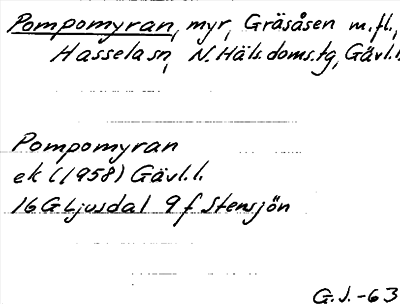 Pompomyran, myr, Gräsåsen m.fl.,
Hassela sn, N. Häls. doms. tg, Gävl. l.
Pompomyran
ek (1958) Gävl. l.
16 G Ljusdal 9 f Stensjön
G. J. -63